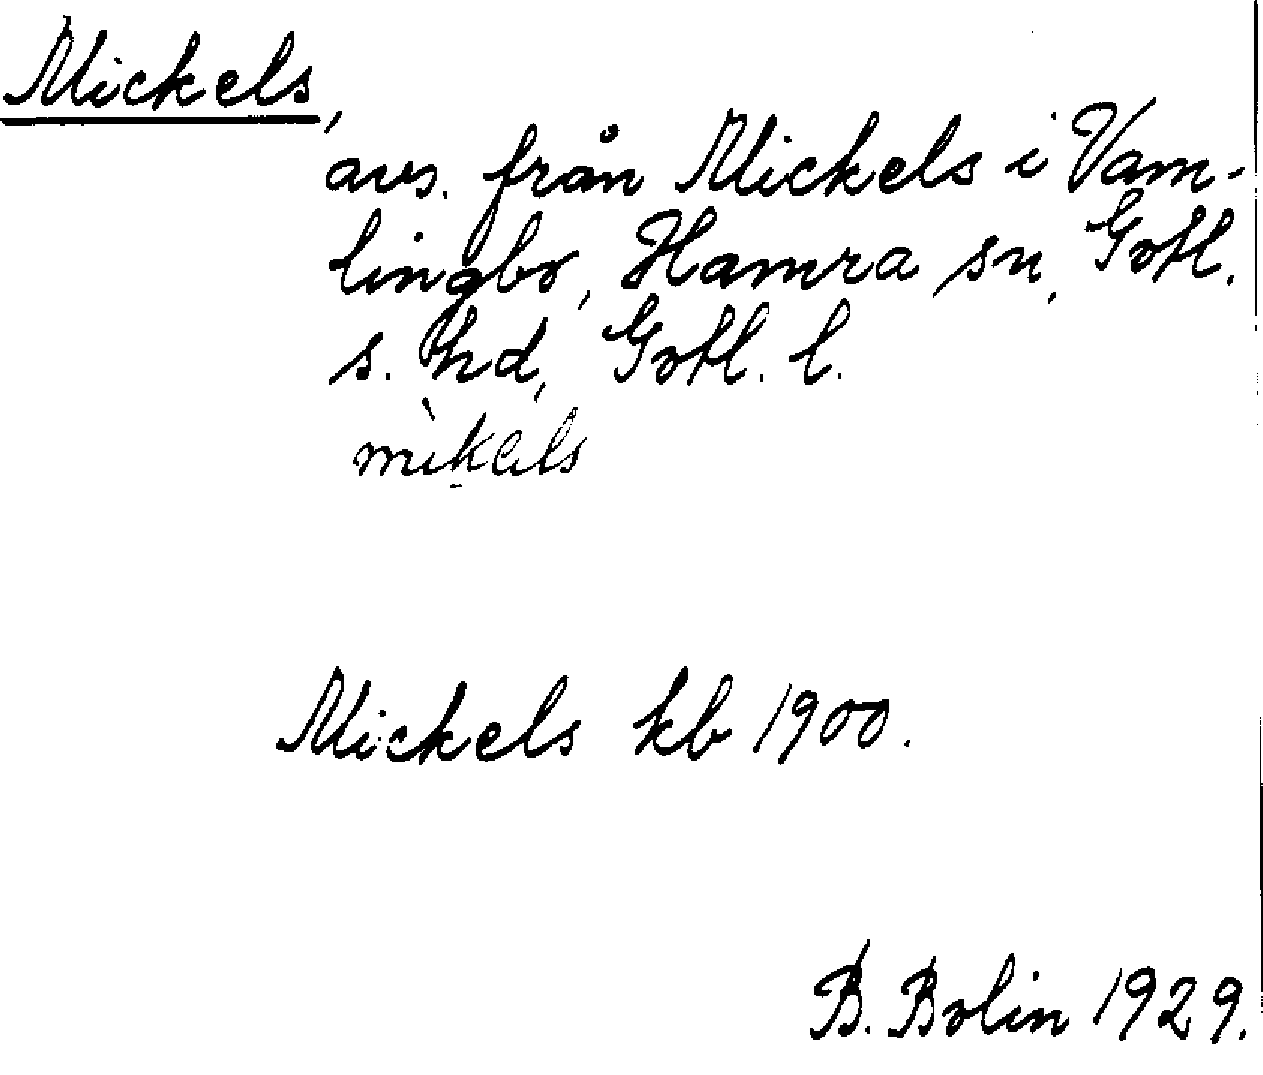 Mickels,
avs. från Mickels i Vam-
lingbo, Hamra sn, Gotl.
s. hd, Gotl. l.
Mickels kb 1900.
B. Bolin 1929.